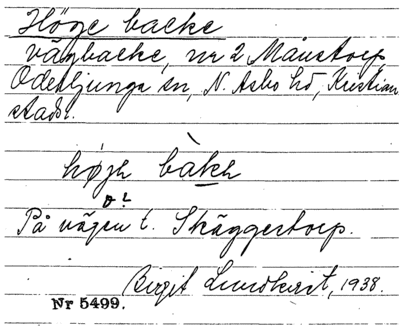 Höge backe
vägbacke, nr 2 Månstorp,
Oderljunga sn, N. Asbo hd, Kristian
stads.
På vägen t. Skäggertorp.
Birgit Lundkvist, 1938.
Nr 5499.